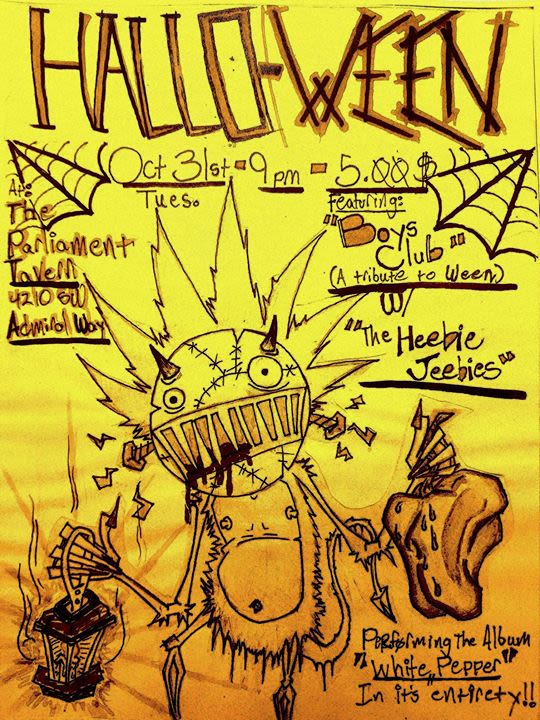 HALLO-WEEN
Oct 31st - 9 pm - 5.00$
Tues.
At:
The
Parliament
Tavern
4210 SW
Admiral Way
Featuring:
"Boys
Club"
(A tribute to Ween)
W/
"The Heebie
Jeebies"
Performing The Album
"White Pepper"
In it's entirety!!